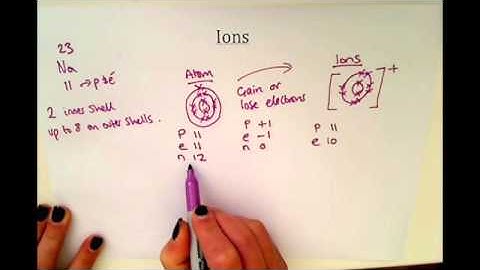 Ions
23
Na
11 → p & é
2 inner shell
up to 8 on outer shells.
Atom
p 11
e 11
n 12
Gain or
lose electrons
p +1
e -1
n 0
Ions
+
p 11
e 10